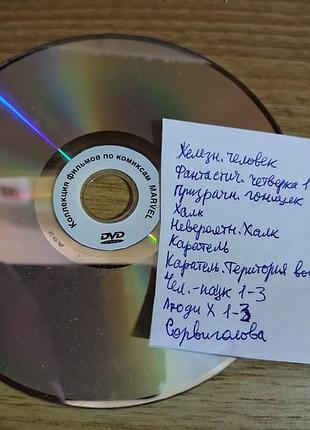 Коллекция фильмов по комиксам MARVEL
DVD
Железн. человек
Фантастич. четверка 1
Призрачн. гонщек
Халк
Невероятн. Халк
Каратель
Каратель. Територия во
Чел.-паук 1-3
Люди X 1-3
Сорвиголова